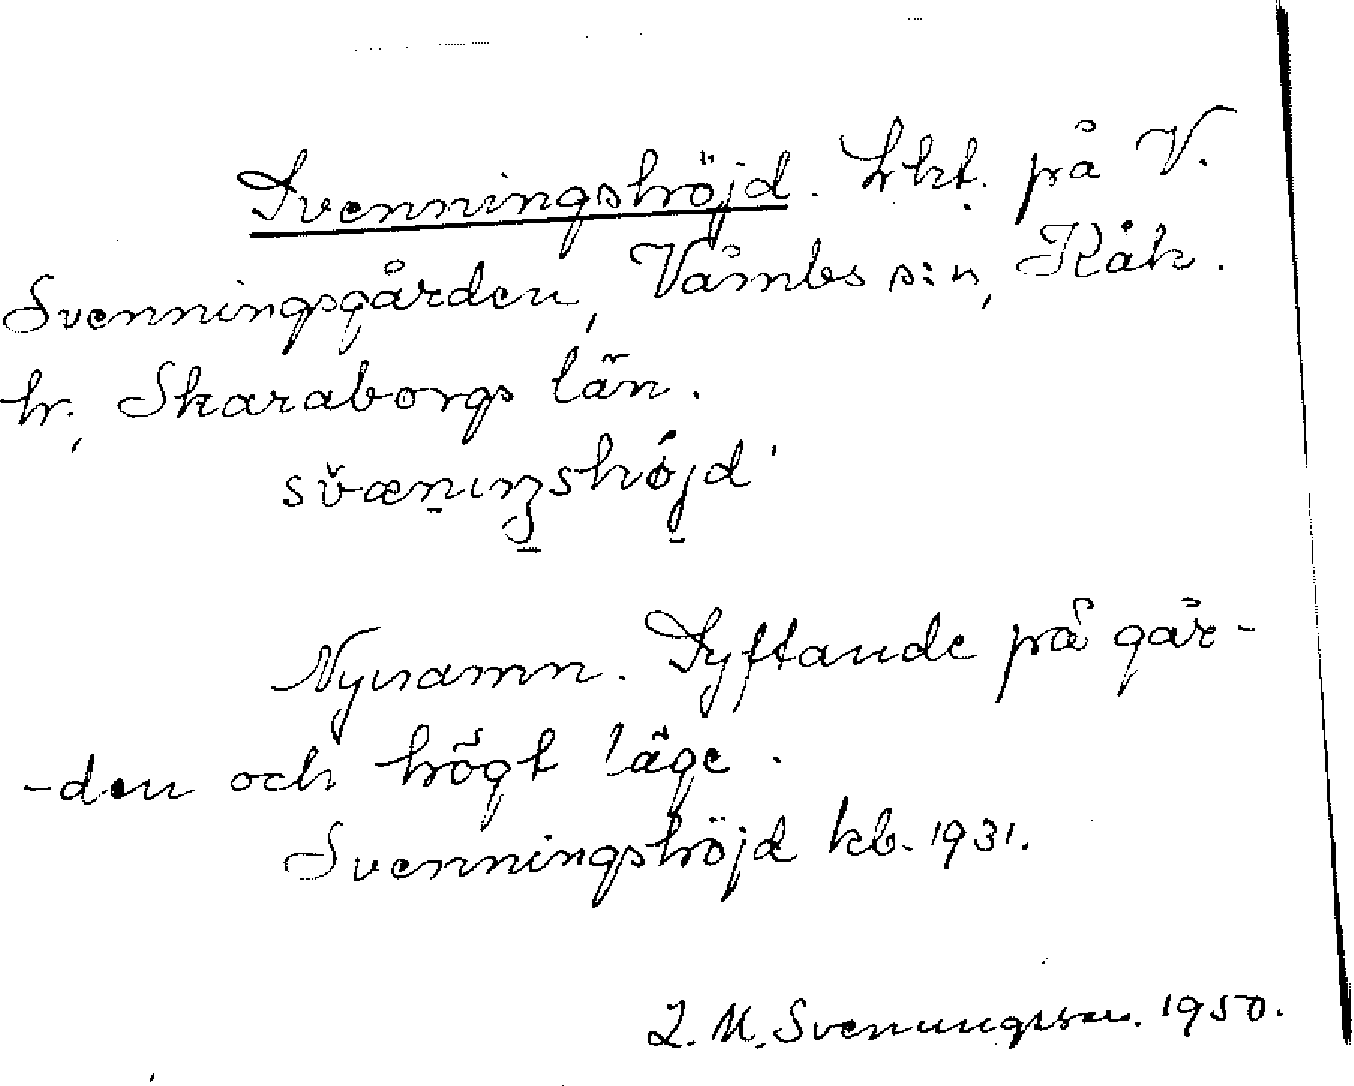 Svenningshöjd. Lht. på V.
Svenningsgården, Våmbs s:n, Kåk.
hr, Skaraborgs län.
svænıŋshöjd
Nynamn. Syftande på går-
-den och högt läge.
Svenningshöjd kb. 1931.
L. M. Svenungsson. 1950.